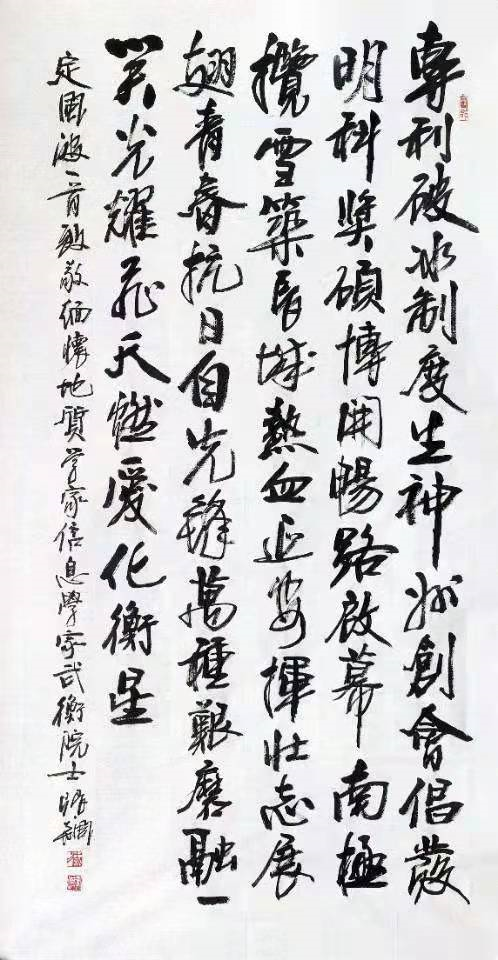 專利破冰制度生神州創會倡發
明科獎碩博開暢路啟幕南極
攬雪築長城熱血延安揮壯志展
翅青春抗日自先鋒萬種艱磨融一
笑光耀飛天燃愛化衡星
定風波一首致敬緬懷地質学家信息學家武衡院士